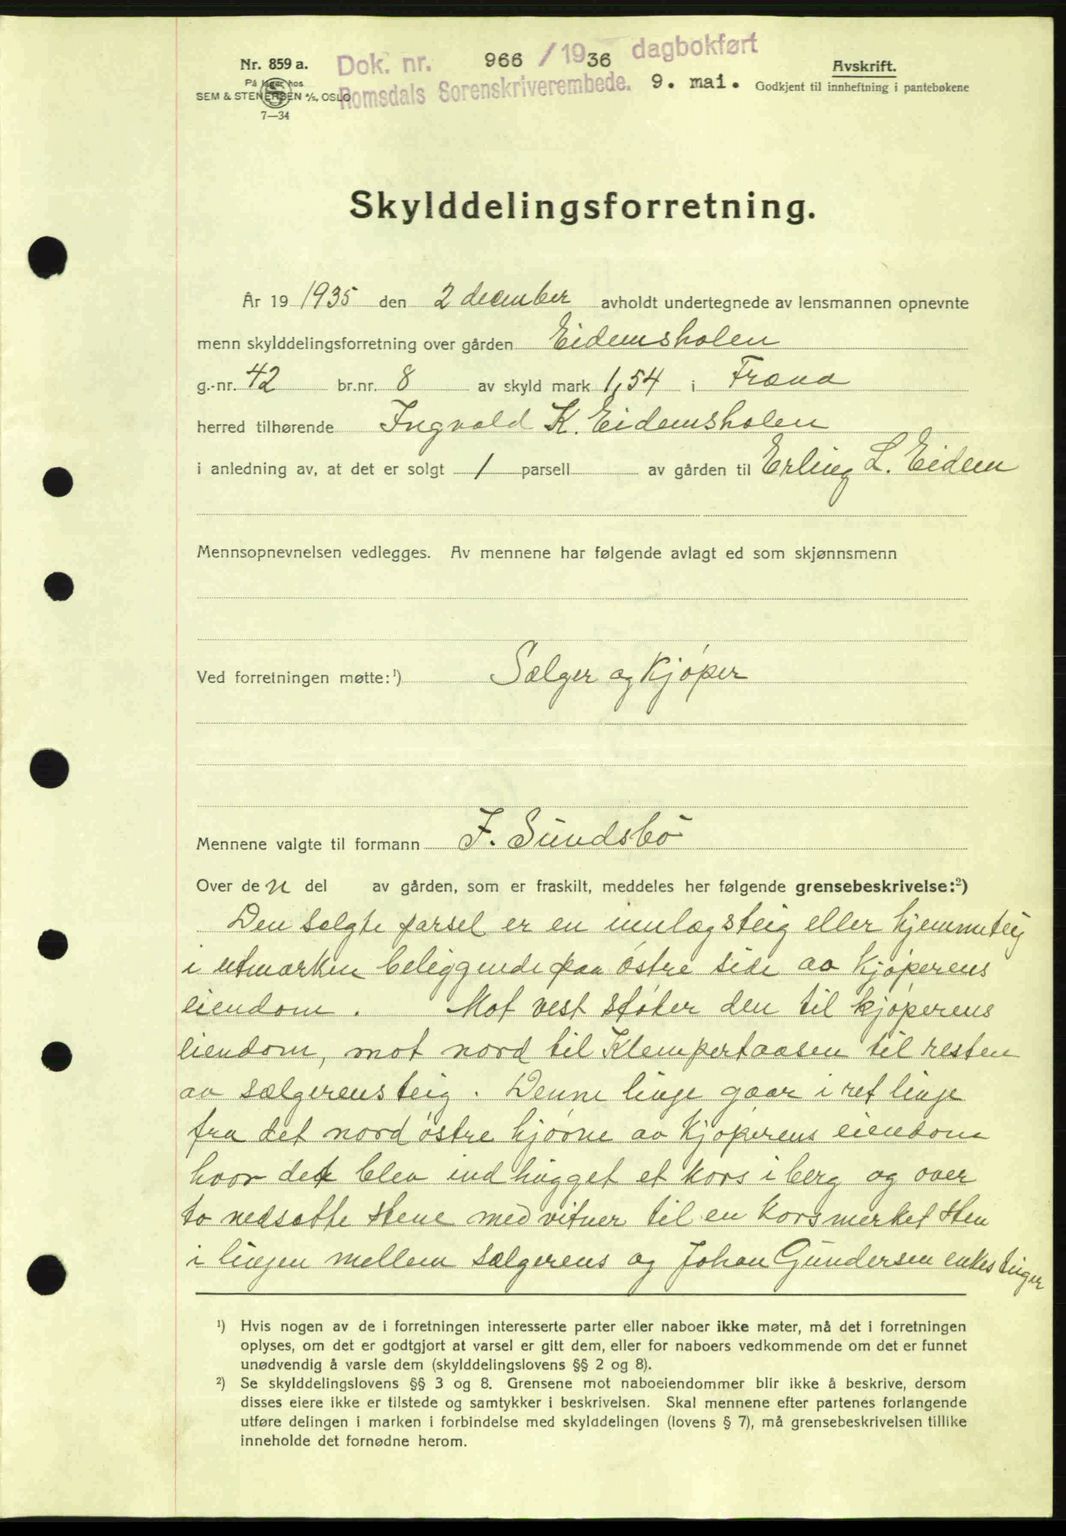 Nr. 859 a.
På lager hos
SEM & STENERSEN A/S, OSLO
7—34
Dok. nr. 966 / 1936 dagbokført
Romsdals Sorenskriverembede. 9. mai.
Avskrift.
Godkjent til innheftning i pantebøkene
Skylddelingsforretning.
År 19 1935 den 2 december avholdt undertegnede av lensmannen opnevnte
menn skylddelingsforretning over gården Eidemsholen
g.-nr. 42 br.nr. 8 av skyld mark 1,54 i Fræna
herred tilhørende Ingvald K. Eidemsholen
i anledning av, at det er solgt 1 parsell av gården til Erling L. Eidem
Mennsopnevnelsen vedlegges. Av mennene har følgende avlagt ed som skjønnsmenn
Ved forretningen møtte:¹) Sælger og Kjøper
Mennene valgte til formann J. Sundsbö
Over den del av gården, som er fraskilt, meddeles her følgende grensebeskrivelse:²)
Den solgte parsel er en innlægsteig eller hjemmteig
i utmarken beliggende paa östre side av kjøperens
eiendom. Mot vest støter den til kjøperens
eiendom, mot nord til Klempertaasen til resten
av sælgerens teig. Denne linje gaar i ret linje
fra det nord östre hjørne av Kjøperens eiendom
hvor det blev indhugget et kors i berg og over
to nedsatte stene med vitner til en korsmerket sten
i linjen mellem sælgerens og Johan Gundersen enkes teiger
¹) Hvis nogen av de i forretningen interesserte parter eller naboer ikke møter, må det i forretningen
oplyses, om det er godtgjort at varsel er gitt dem, eller for naboers vedkommende om det er funnet
unødvendig å varsle dem (skylddelingslovens §§ 2 og 8).
²) Se skylddelingslovens §§ 3 og 8. Grensene mot naboeiendommer blir ikke å beskrive, dersom
disses eiere ikke er tilstede og samtykker i beskrivelsen. Skal mennene efter partenes forlangende
utføre delingen i marken i forbindelse med skylddelingen (lovens § 7), må grensebeskrivelsen tillike
inneholde det fornødne herom.